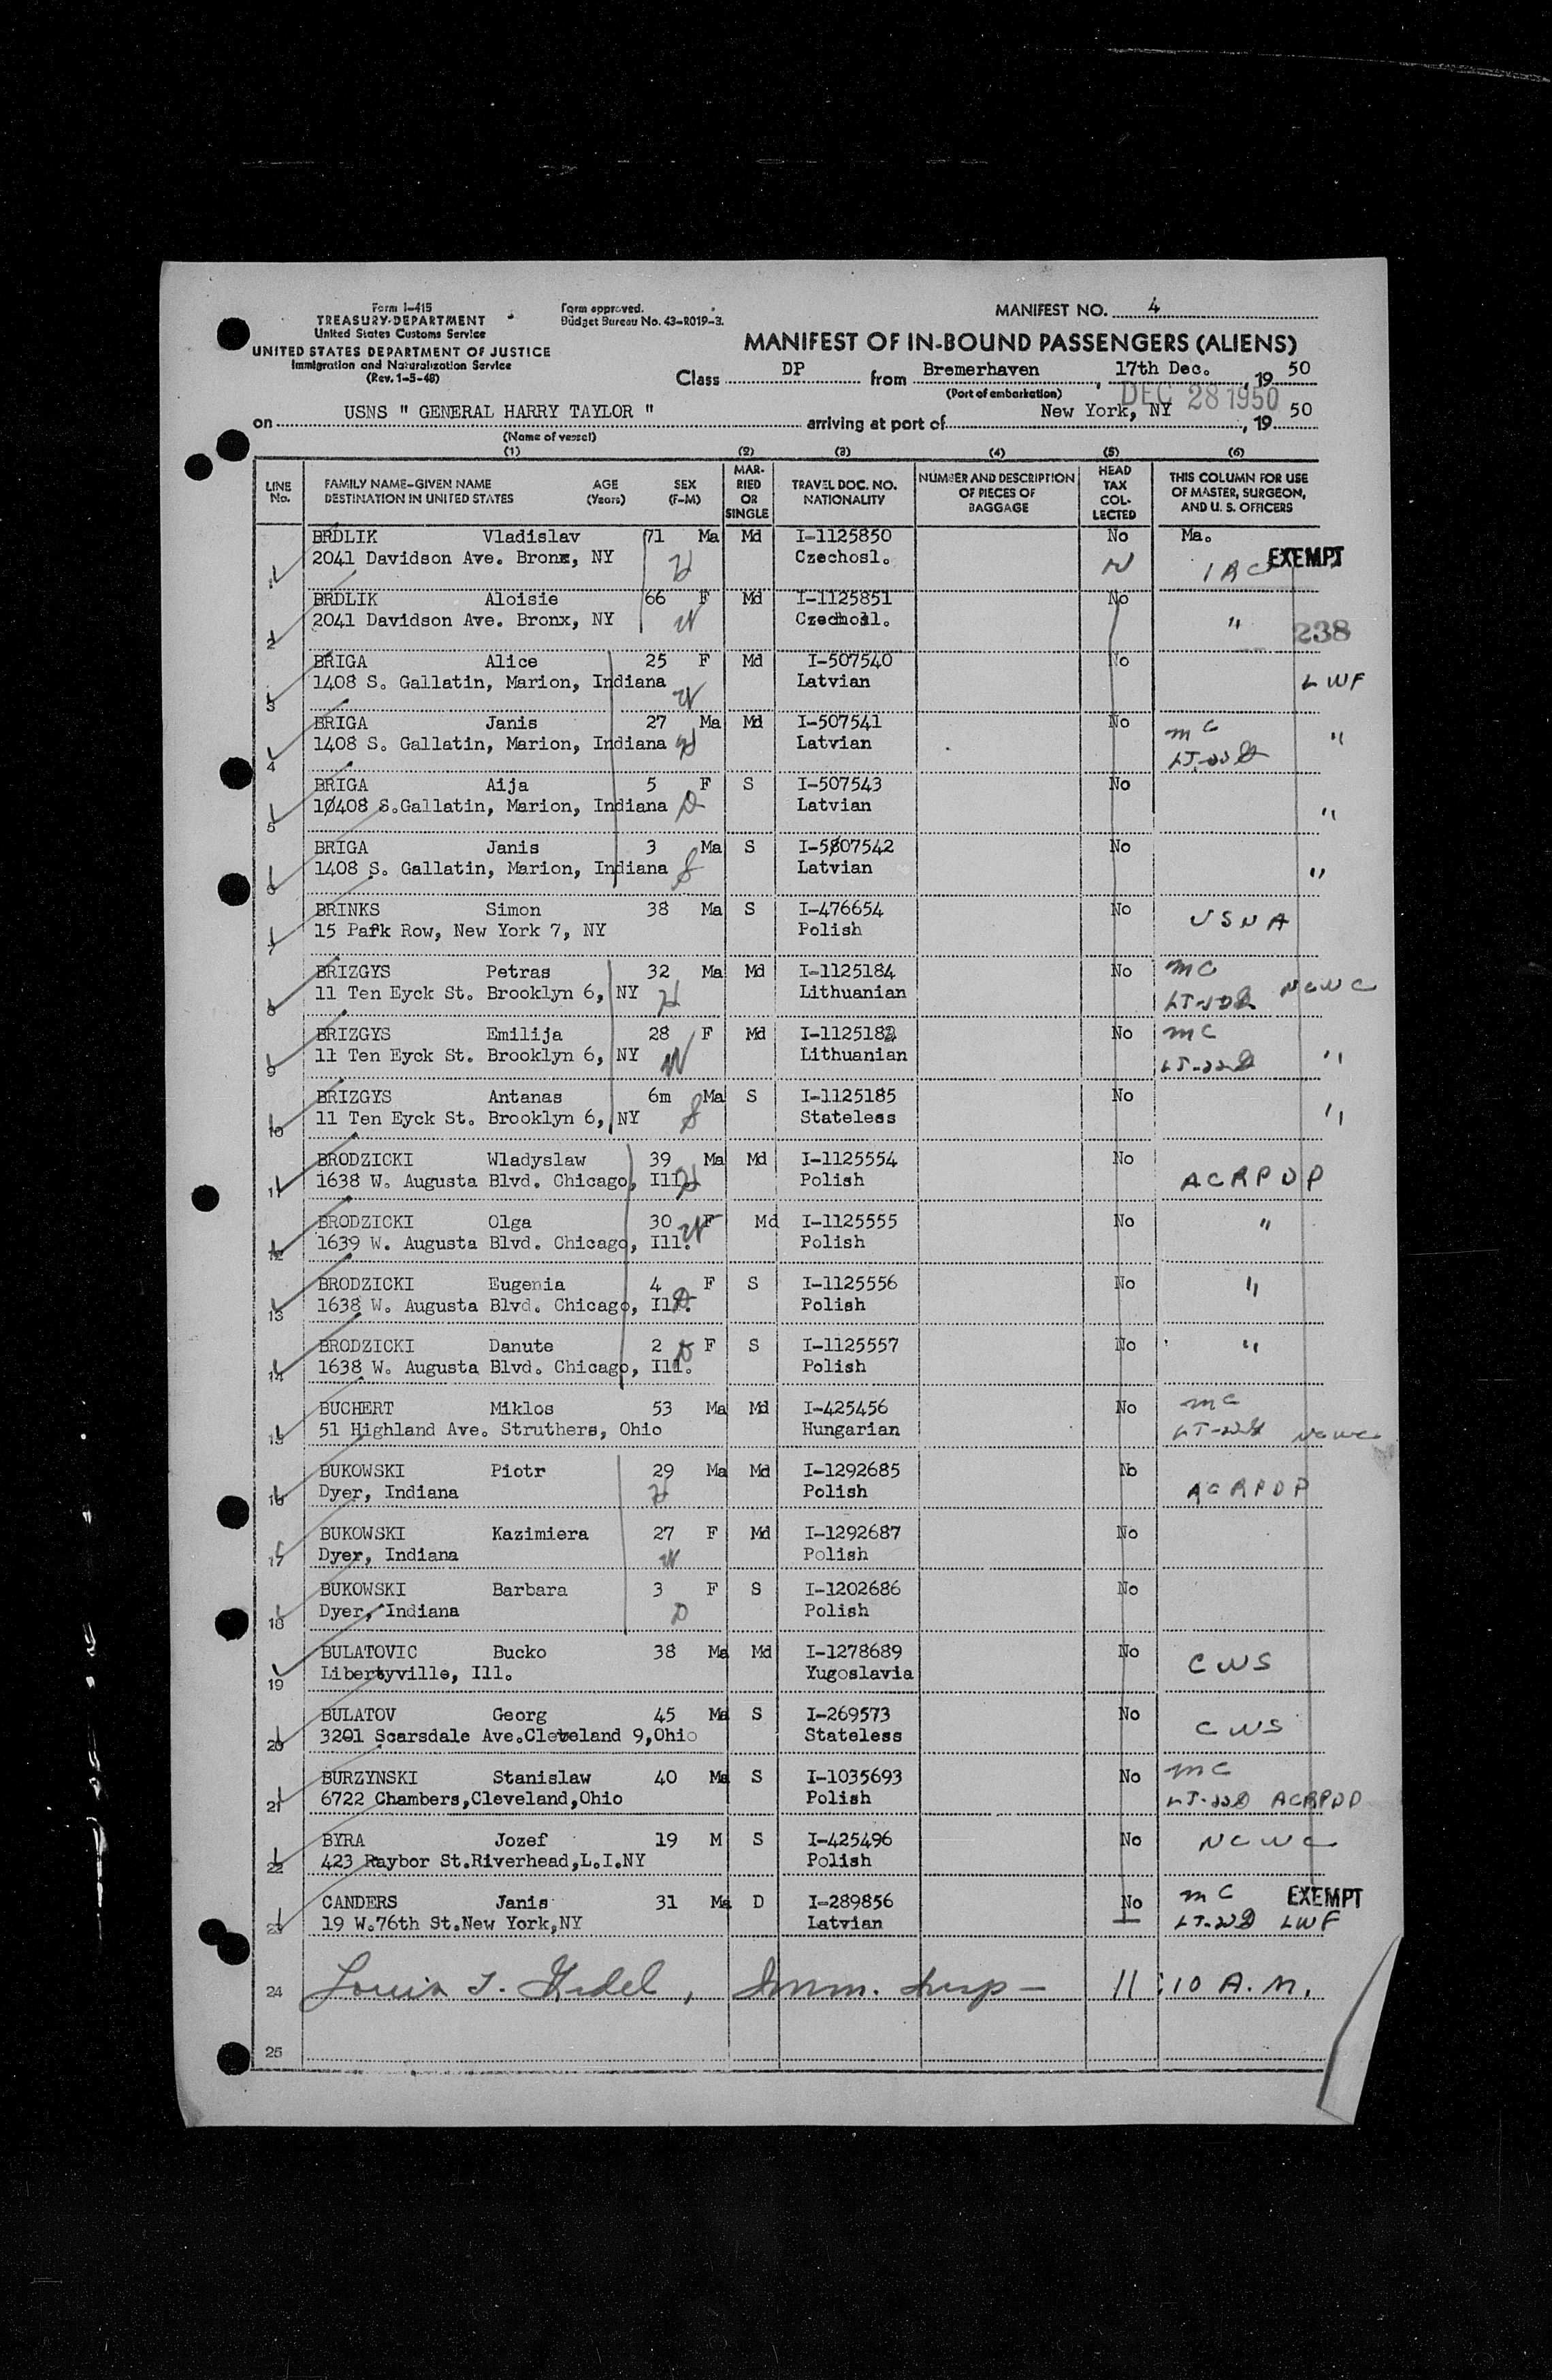 Form I-415
TREASURY DEPARTMENT
United States Customs Service
UNITED STATES DEPARTMENT OF JUSTICE
Immigration and Naturalization Service
(Rev. 1-5-48)
Form approved.
Budget Bureau No. 43-R019-3.
MANIFEST NO. 4
MANIFEST OF IN-BOUND PASSENGERS (ALIENS)
Class DP from Bremerhaven, 17th Dec., 19 50
(Port of embarkation)
DEC 28 1950
on USNS " GENERAL HARRY TAYLOR " arriving at port of New York, NY, 19 50
(Name of vessel)
(1) (2) (3) (4) (5) (6)
LINE No. FAMILY NAME-GIVEN NAME DESTINATION IN UNITED STATES AGE (Years) SEX (F-M) MARRIED OR SINGLE TRAVEL DOC. NO. NATIONALITY NUMBER AND DESCRIPTION OF PIECES OF BAGGAGE HEAD TAX COLLECTED THIS COLUMN FOR USE OF MASTER, SURGEON, AND U. S. OFFICERS
BRDLIK Vladislav 71 Ma Md I-1125850 No Ma.
1 2041 Davidson Ave. Bronx, NY H Czechosl. N IRC EXEMPT
BRDLIK Aloisie 66 F Md I-1125851 No
2 2041 Davidson Ave. Bronx, NY W Czechosl. " 238
BRIGA Alice 25 F Md I-507540 No
3 1408 S. Gallatin, Marion, Indiana W Latvian LWF
BRIGA Janis 27 Ma Md I-507541 No mc
4 1408 S. Gallatin, Marion, Indiana H Latvian "
BRIGA Aija 5 F S I-507543 No
5 10408 S.Gallatin, Marion, Indiana D Latvian "
BRIGA Janis 3 Ma S I-5807542 No
6 1408 S. Gallatin, Marion, Indiana S Latvian "
BRINKS Simon 38 Ma S I-476654 No USNA
7 15 Park Row, New York 7, NY Polish
BRIZGYS Petras 32 Ma Md I-1125184 No mc
8 11 Ten Eyck St. Brooklyn 6, NY H Lithuanian NCWC
BRIZGYS Emilija 28 F Md I-1125182 No mc
9 11 Ten Eyck St. Brooklyn 6, NY W Lithuanian "
BRIZGYS Antanas 6m Ma S I-1125185 No
10 11 Ten Eyck St. Brooklyn 6, NY S Stateless "
BRODZICKI Wladyslaw 39 Ma Md I-1125554 No
11 1638 W. Augusta Blvd. Chicago, Ill. H Polish ACRPDP
BRODZICKI Olga 30 W F Md I-1125555 No "
12 1639 W. Augusta Blvd. Chicago, Ill. Polish
BRODZICKI Eugenia 4 F S I-1125556 No "
13 1638 W. Augusta Blvd. Chicago, Ill. D Polish
BRODZICKI Danute 2 D F S I-1125557 No "
14 1638 W. Augusta Blvd. Chicago, Ill. Polish
BUCHERT Miklos 53 Ma Md I-425456 No mc
15 51 Highland Ave. Struthers, Ohio Hungarian NCWC
BUKOWSKI Piotr 29 Ma Md I-1292685 No
16 Dyer, Indiana H Polish ACRPDP
BUKOWSKI Kazimiera 27 F Md I-1292687 No
17 Dyer, Indiana W Polish
BUKOWSKI Barbara 3 F S I-1202686 No
18 Dyer, Indiana D Polish
BULATOVIC Bucko 38 Ma Md I-1278689 No
19 Libertyville, Ill. Yugoslavia CWS
BULATOV Georg 45 Ma S I-269573 No
20 3201 Scarsdale Ave.Cleveland 9,Ohio Stateless CWS
BURZYNSKI Stanislaw 40 Ma S I-1035693 No mc
21 6722 Chambers,Cleveland,Ohio Polish ACRPDP
BYRA Jozef 19 M S I-425496 No NCWC
22 423 Raybor St.Riverhead,L.I.NY Polish
CANDERS Janis 31 Ma D I-289856 No mc EXEMPT
23 19 W.76th St.New York,NY Latvian LWF
24 Louis Imm. Insp - 11:10 A.M.
25